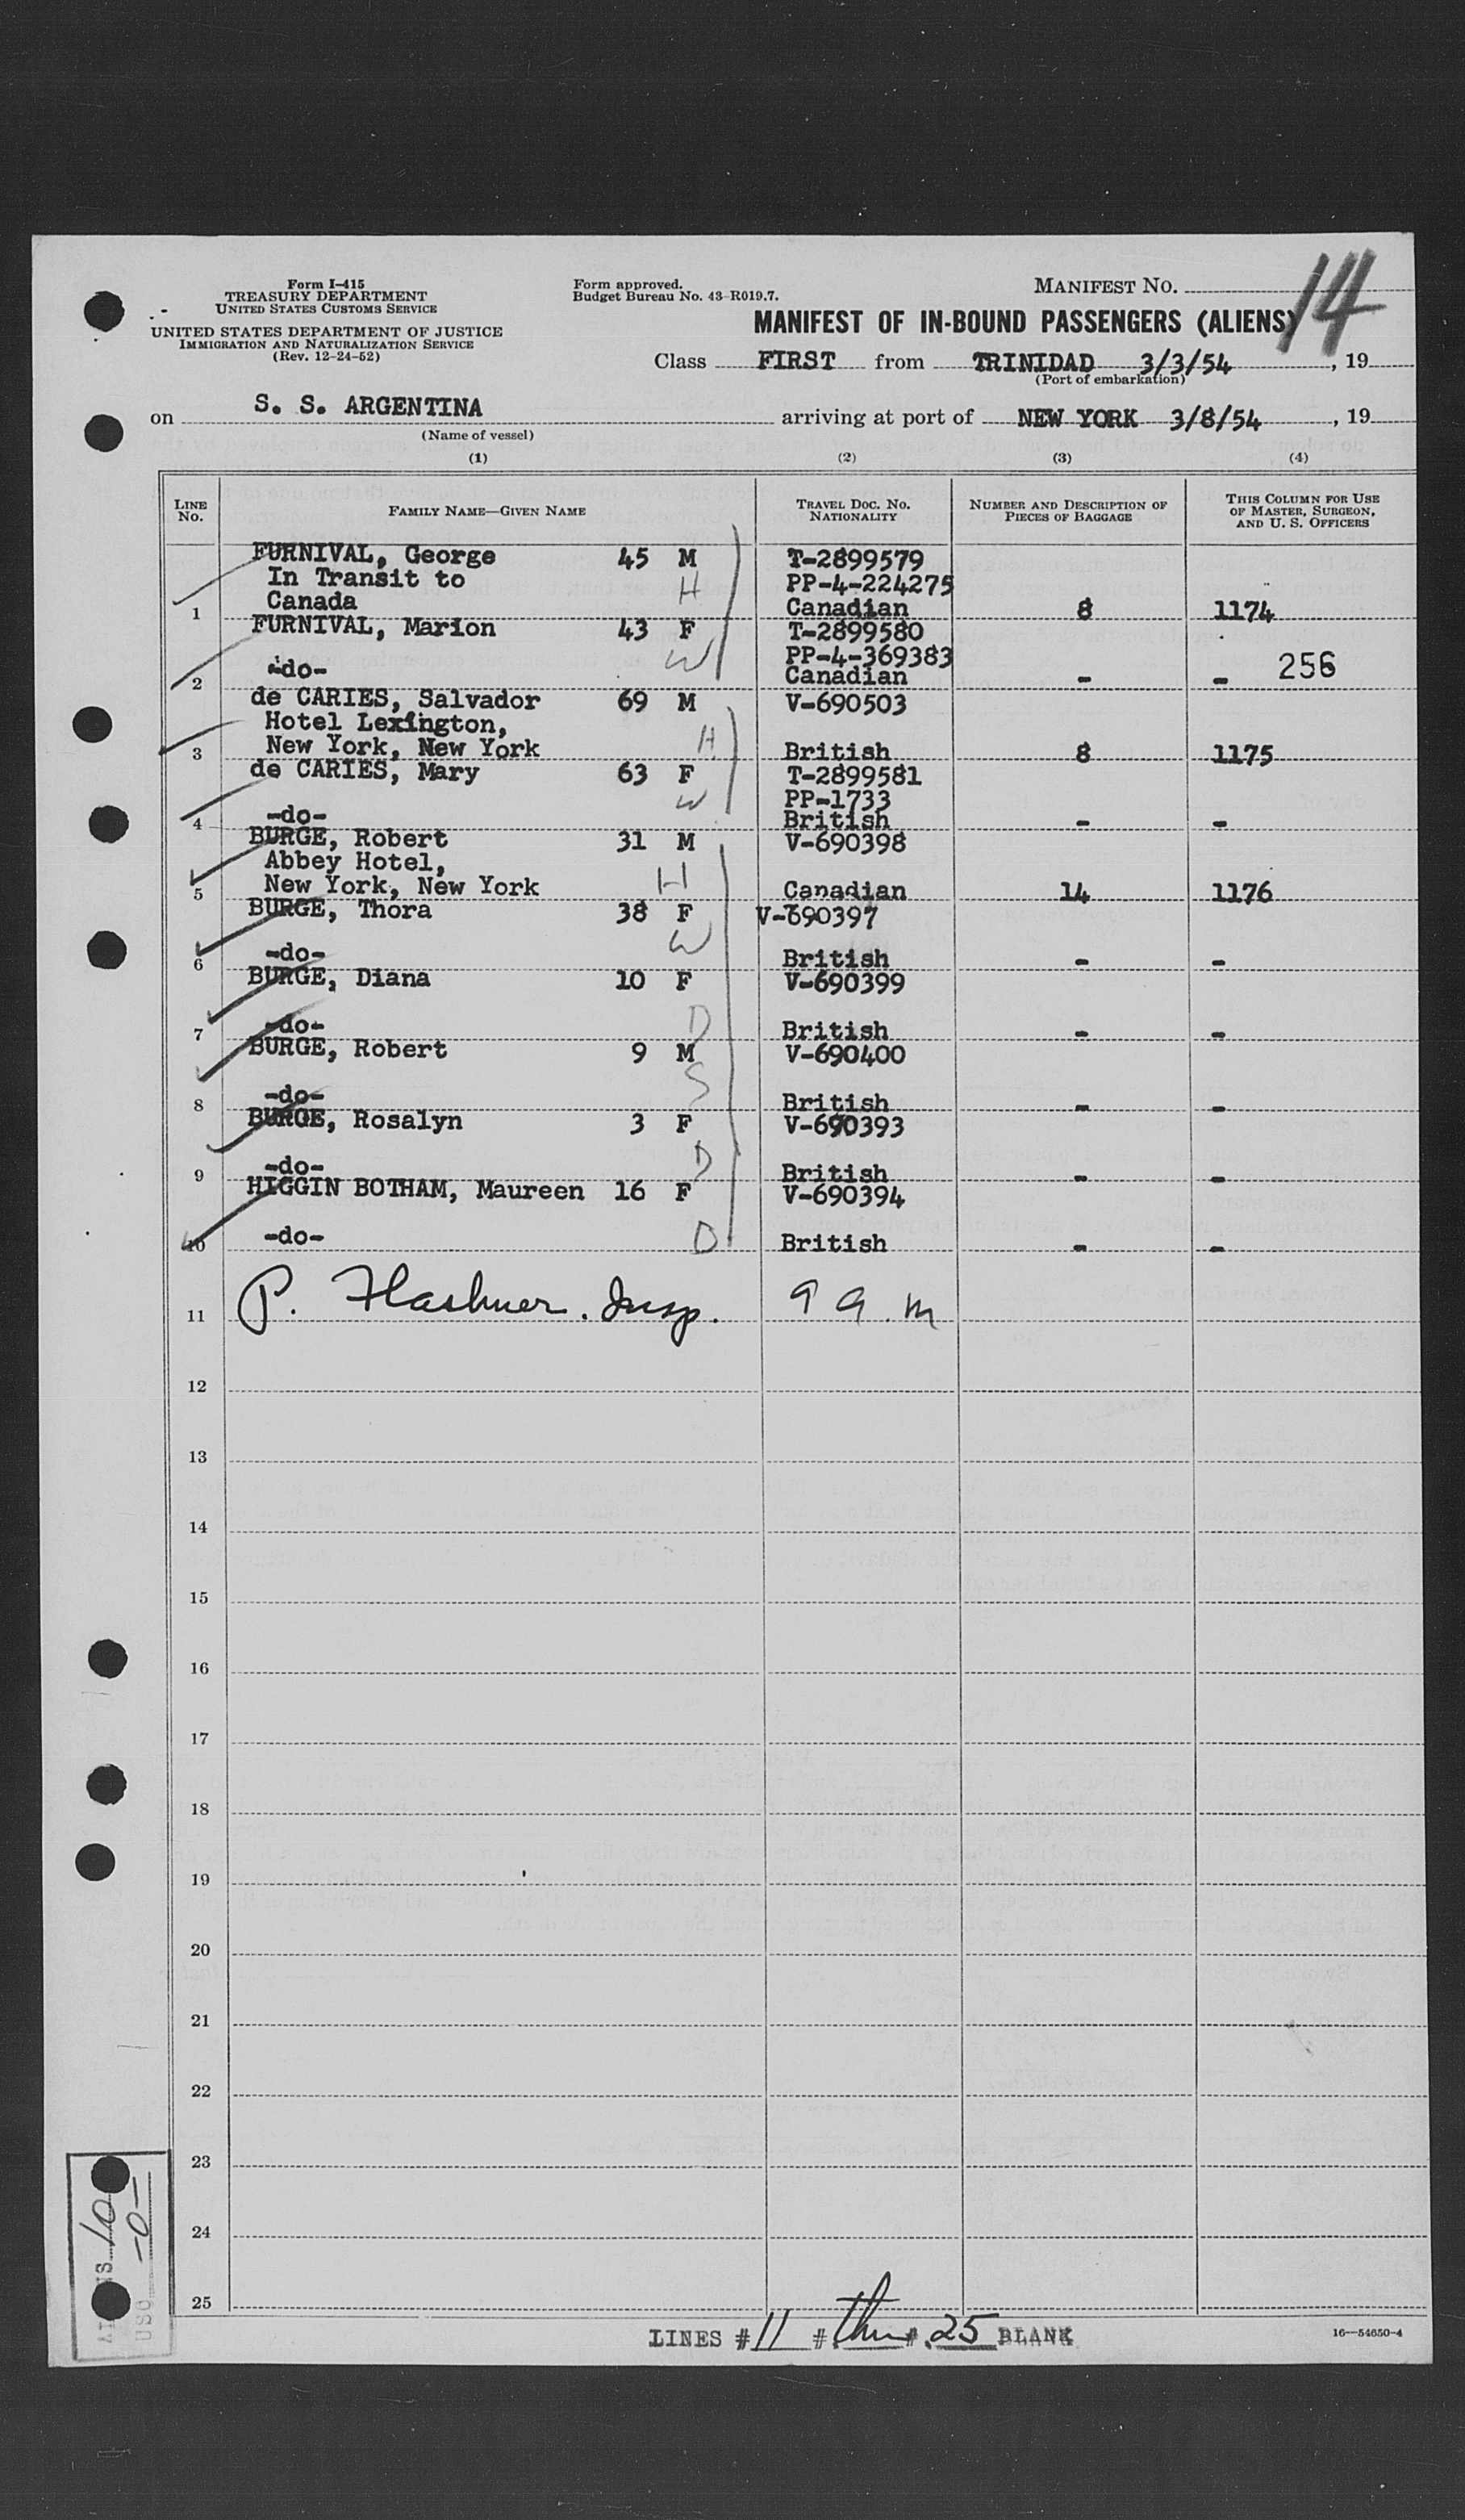 Form I-415
TREASURY DEPARTMENT
UNITED STATES CUSTOMS SERVICE
UNITED STATES DEPARTMENT OF JUSTICE
IMMIGRATION AND NATURALIZATION SERVICE
(Rev. 12-24-52)
Form approved.
Budget Bureau No. 43-R019.7.
MANIFEST No. 14
MANIFEST OF IN-BOUND PASSENGERS (ALIENS)
Class FIRST from TRINIDAD 3/3/54, 19
(Port of embarkation)
on S. S. ARGENTINA arriving at port of NEW YORK 3/8/54, 19
(Name of vessel)
(1) (2) (3) (4)
LINE No. FAMILY NAME—GIVEN NAME TRAVEL DOC. NO. NATIONALITY NUMBER AND DESCRIPTION OF PIECES OF BAGGAGE THIS COLUMN FOR USE OF MASTER, SURGEON, AND U. S. OFFICERS
FURNIVAL, George 45 M T-2899579
In Transit to H PP-4-224275
1 Canada Canadian 8 1174
FURNIVAL, Marion 43 F T-2899580
W PP-4-369383
2 -do- Canadian - - 256
de CARIES, Salvador 69 M V-690503
Hotel Lexington,
3 New York, New York H British 8 1175
de CARIES, Mary 63 F T-2899581
W PP-1733
4 -do- British - -
BURGE, Robert 31 M V-690398
Abbey Hotel,
5 New York, New York H Canadian 14 1176
BURGE, Thora 38 F V-690397
W
6 -do- British - -
BURGE, Diana 10 F V-690399
7 -do- D British - -
BURGE, Robert 9 M V-690400
S
8 -do- British - -
BURGE, Rosalyn 3 F V-690393
9 -do- D British - -
HIGGIN BOTHAM, Maureen 16 F V-690394
10 -do- D British - -
11 P. Flashner. Insp. 9 a.m
12
13
14
15
16
17
18
19
20
21
22
23
24
25
ALIENS 10
USC -0-
LINES # 11 # thru # 25 BLANK
16—54650-4